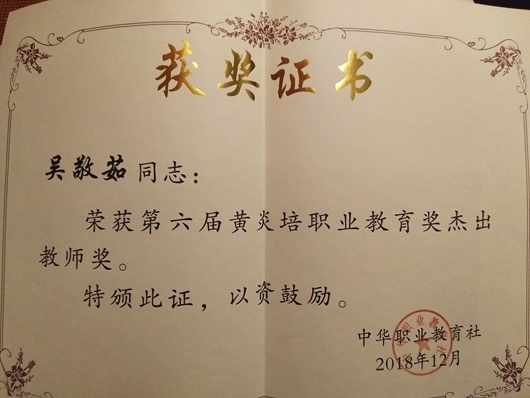 获奖证书
吴敬茹同志：
荣获第六届黄炎培职业教育奖杰出
教师奖。
特颁此证，以资鼓励。
中华职业教育社
2018年12月